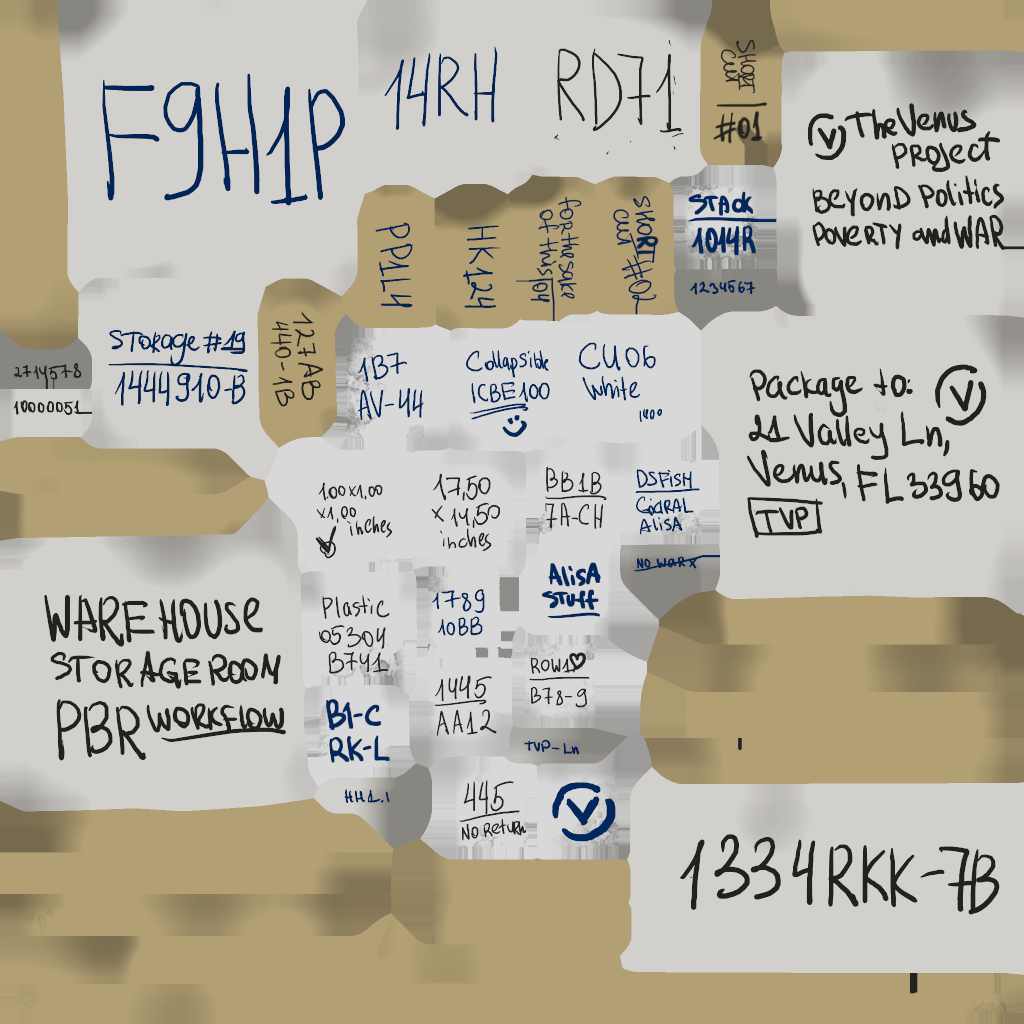 F9H1P
14RH
RD71
SHORT
CUT
#01
V The Venus
PROJECT
BEYOND POLITICS
POVERTY and WAR
PP1L4
HK124
for the sake
of this J04
SHORT
CUT #02
STACK
1014R
1234567
STORAGE #19
1444910-B
2714578
10000051
127AB
440-1B
1B7
AV-44
Collapsible
ICBE100
CU06
White
1400
Package to:
21 Valley Ln,
Venus, FL 33960
V
TVP
1.00 x 1.00
x 1.00
inches
17,50
x 14,50
inches
BB1B
7A-CH
DSFISH
CORAL
AlisA
NO WAR X
WAREHOUSE
STORAGE ROOM
PBR WORKFLOW
Plastic
05304
B741
1789
10BB
AlisA
STUFF
B1-C
RK-L
1445
AA12
ROW1♡
B78-9
TVP-Ln
HH1.1
445
NO RETURN
V
1334RKK-7B